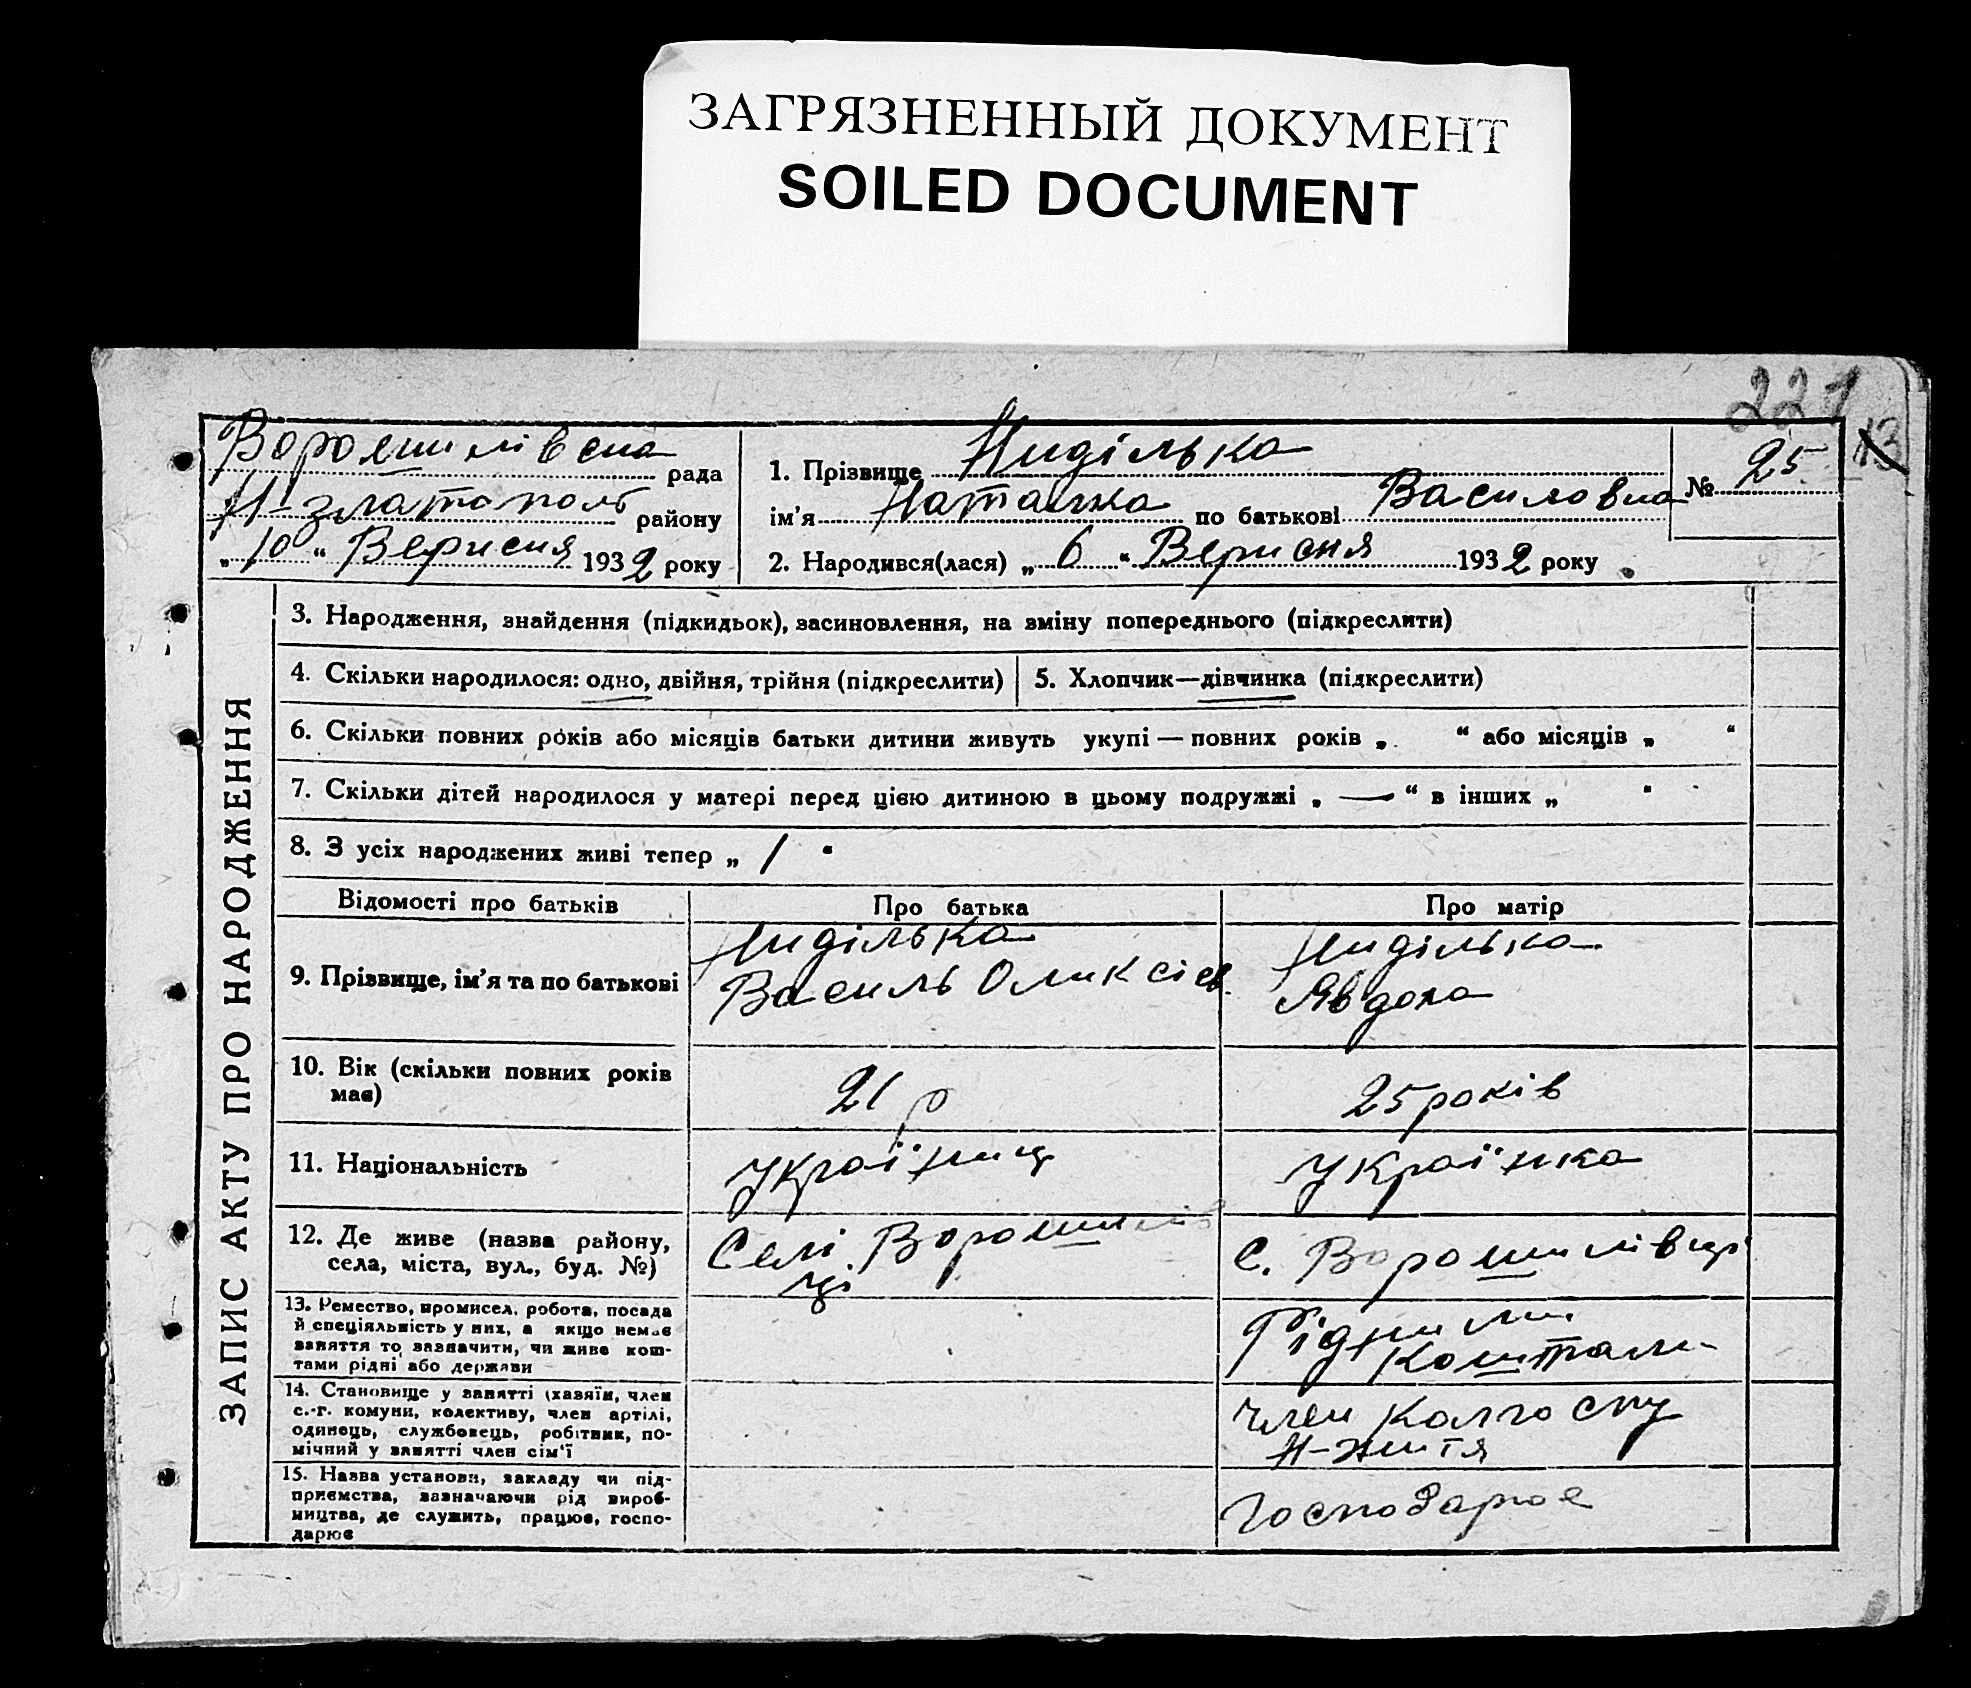 ЗАГРЯЗНЕННЫЙ ДОКУМЕНТ
SOILED DOCUMENT
221
13
Ворошилівська рада
Н-златополь району
„10“ Верисня 1932 року
1. Прізвище Ниділька
ім'я Наталка по батькові Василовна
№ 25
2. Народився(лася) „6“ Верисня 1932 року
ЗАПИС АКТУ ПРО НАРОДЖЕННЯ
3. Народження, знайдення (підкидьок), засиновлення, на зміну попереднього (підкреслити)
4. Скільки народилося: одно, двійня, трійня (підкреслити)
5. Хлопчик—дівчинка (підкреслити)
6. Скільки повних років або місяців батьки дитини живуть укупі — повних років „ “ або місяців „ “
7. Скільки дітей народилося у матері перед цією дитиною в цьому подружжі „ — “ в інших „ “
8. З усіх народжених живі тепер „ 1 “
Відомості про батьків
Про батька
Про матір
9. Прізвище, ім'я та по батькові
Ниділька
Василь Оликсієв.
Ниділька
Явдоха
10. Вік (скільки повних років
має)
21 р
25 років
11. Національність
україниц
українка
12. Де живе (назва району,
села, міста, вул., буд. №)
Селі Ворошилів
ці
С. Ворошилівці
13. Ремество, промисел, робота, посада
й спеціяльність у них, а якщо немає
заняття то зазначити, чи живе кош-
тами рідні або держави
Рідними
коштами
14. Становище у занятті (хазяїн, член
с.-г. комуни, колективу, член артілі,
одинець, службовець, робітник, по-
мічний у занятті член сім'ї
член колгоспу
Н-життя
15. Назва установи, закладу чи під-
приємства, зазначаючи рід вироб-
ництва, де служить, працює, госпо-
дарює
господарює